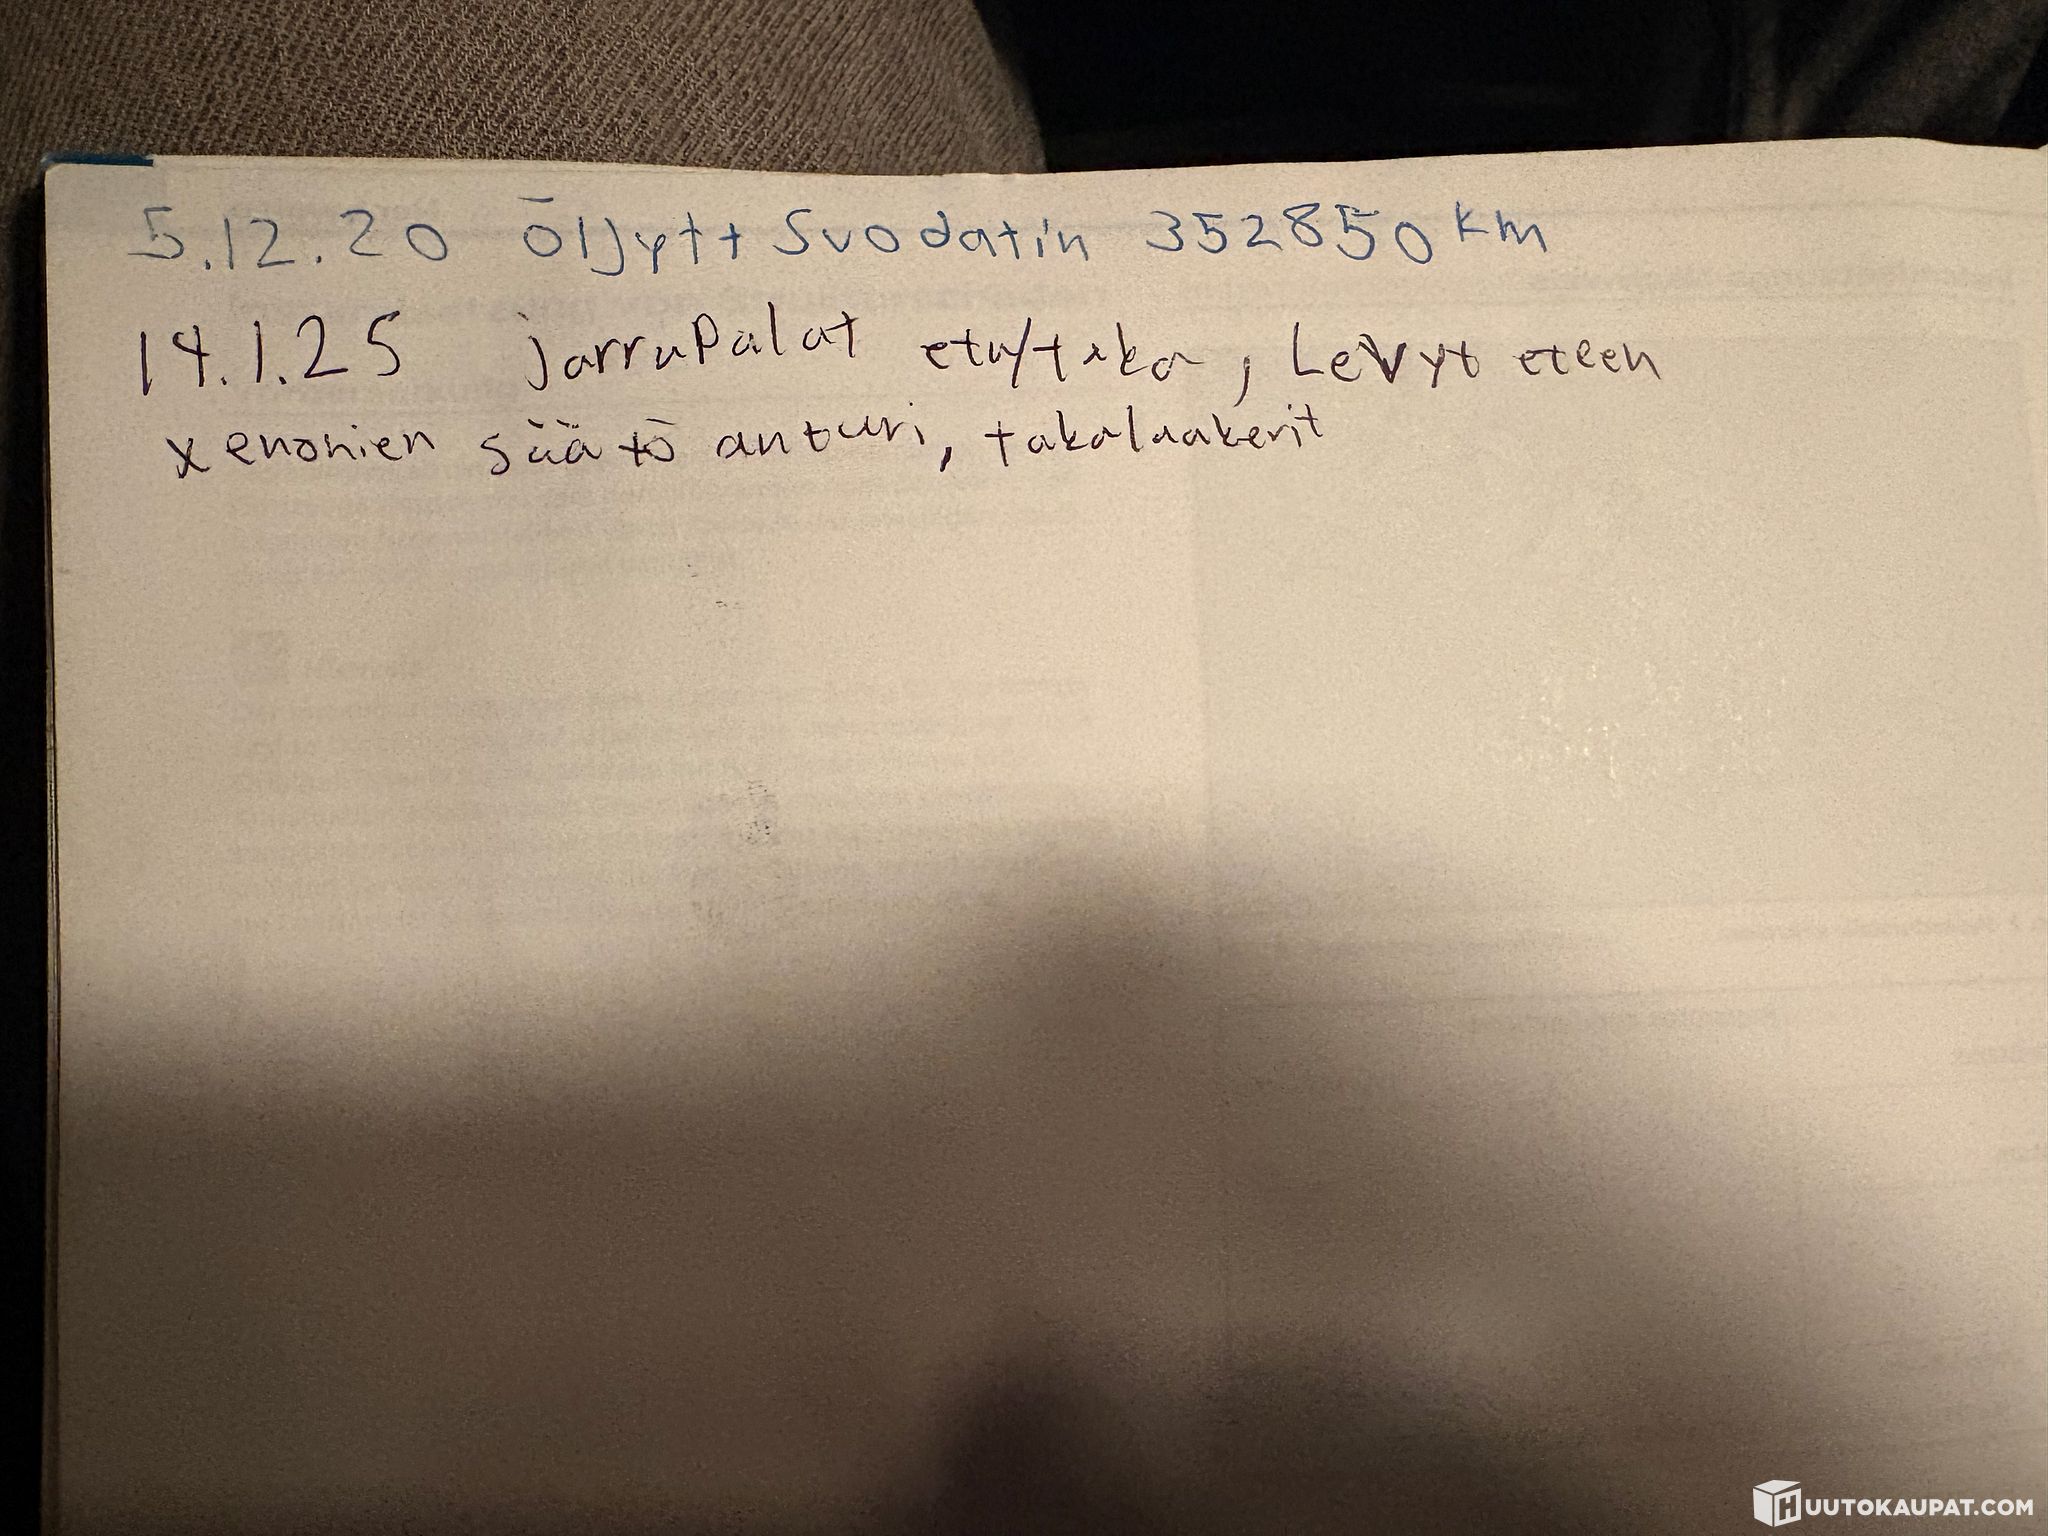 5.12.20 öljyt+ Suodatin 352850 km
14.1.25 jarrupalat etu/taka, Levyt eteen
xenonien säätö anturi, takalaakerit
HUUTOKAUPAT.COM